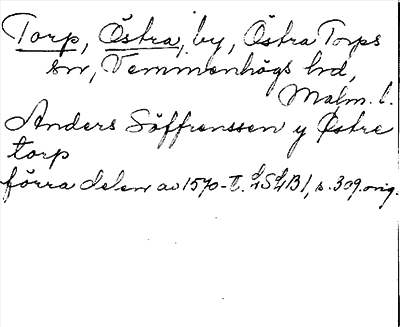 Torp, Östra, by, Östra Torps
sn, Vemmenhögs hd,
Malm. l.
Anders Söffrenssen y Østre
torp
förra delen av 1570-t. LSLB1, s. 309. orig.